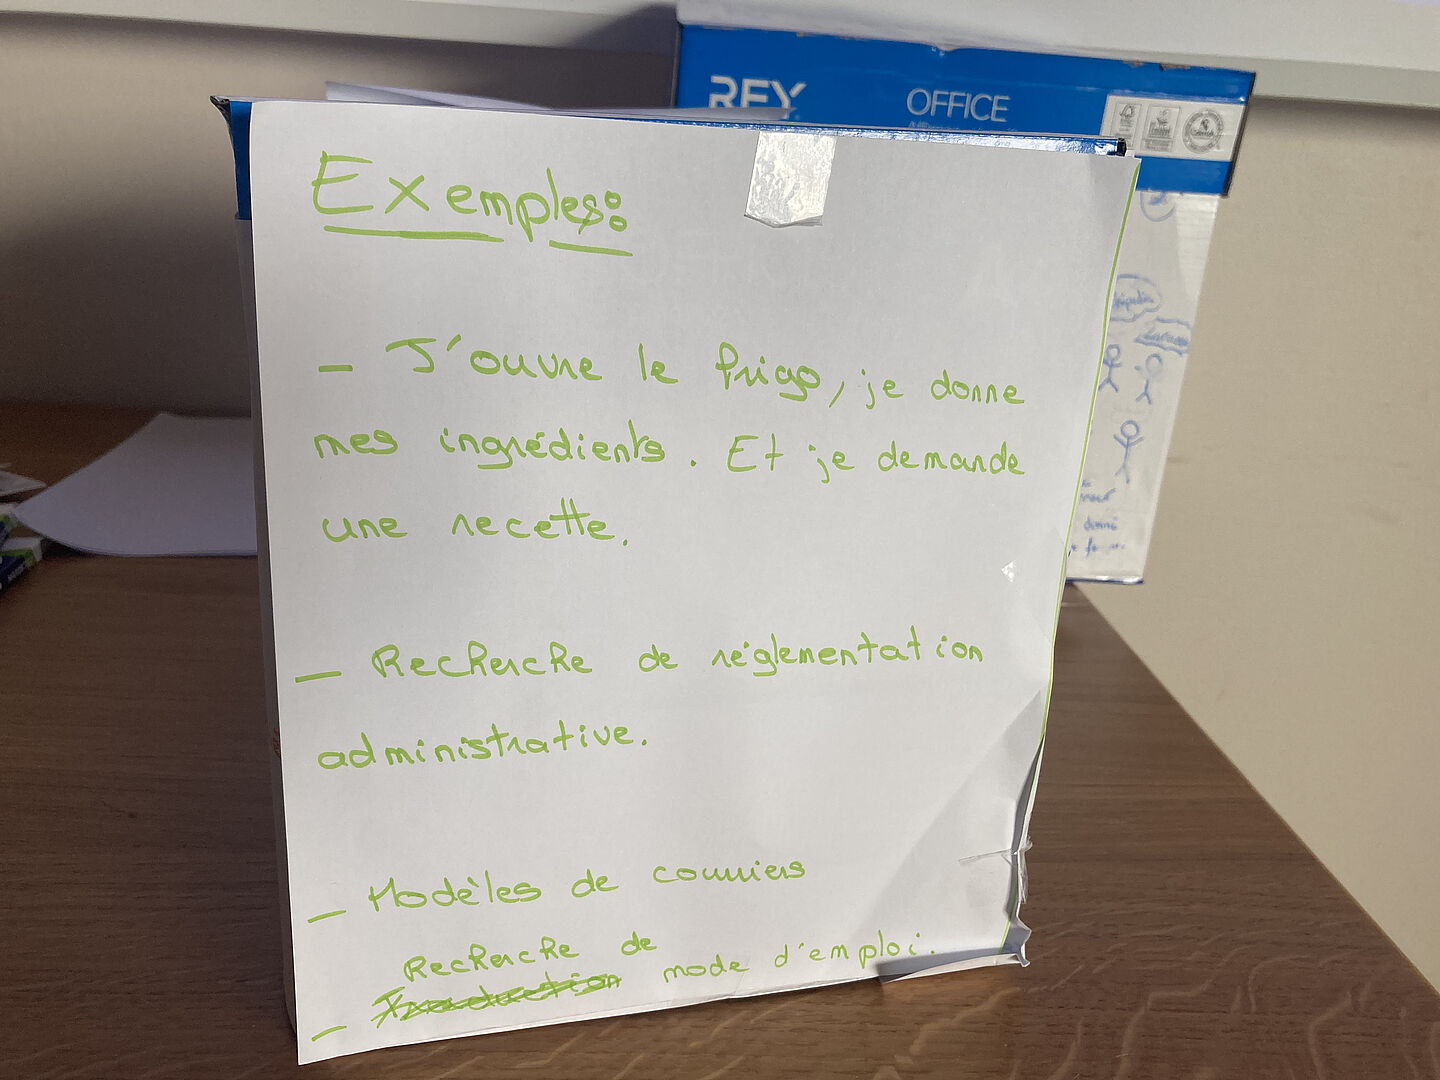 REY
OFFICE
Exemples:
- J'ouvre le frigo, je donne
mes ingrédients. Et je demande
une recette.
- Recherche de réglementation
administrative.
- Modèles de courriers
Recherche de
- Traduction mode d'emploi.
donné